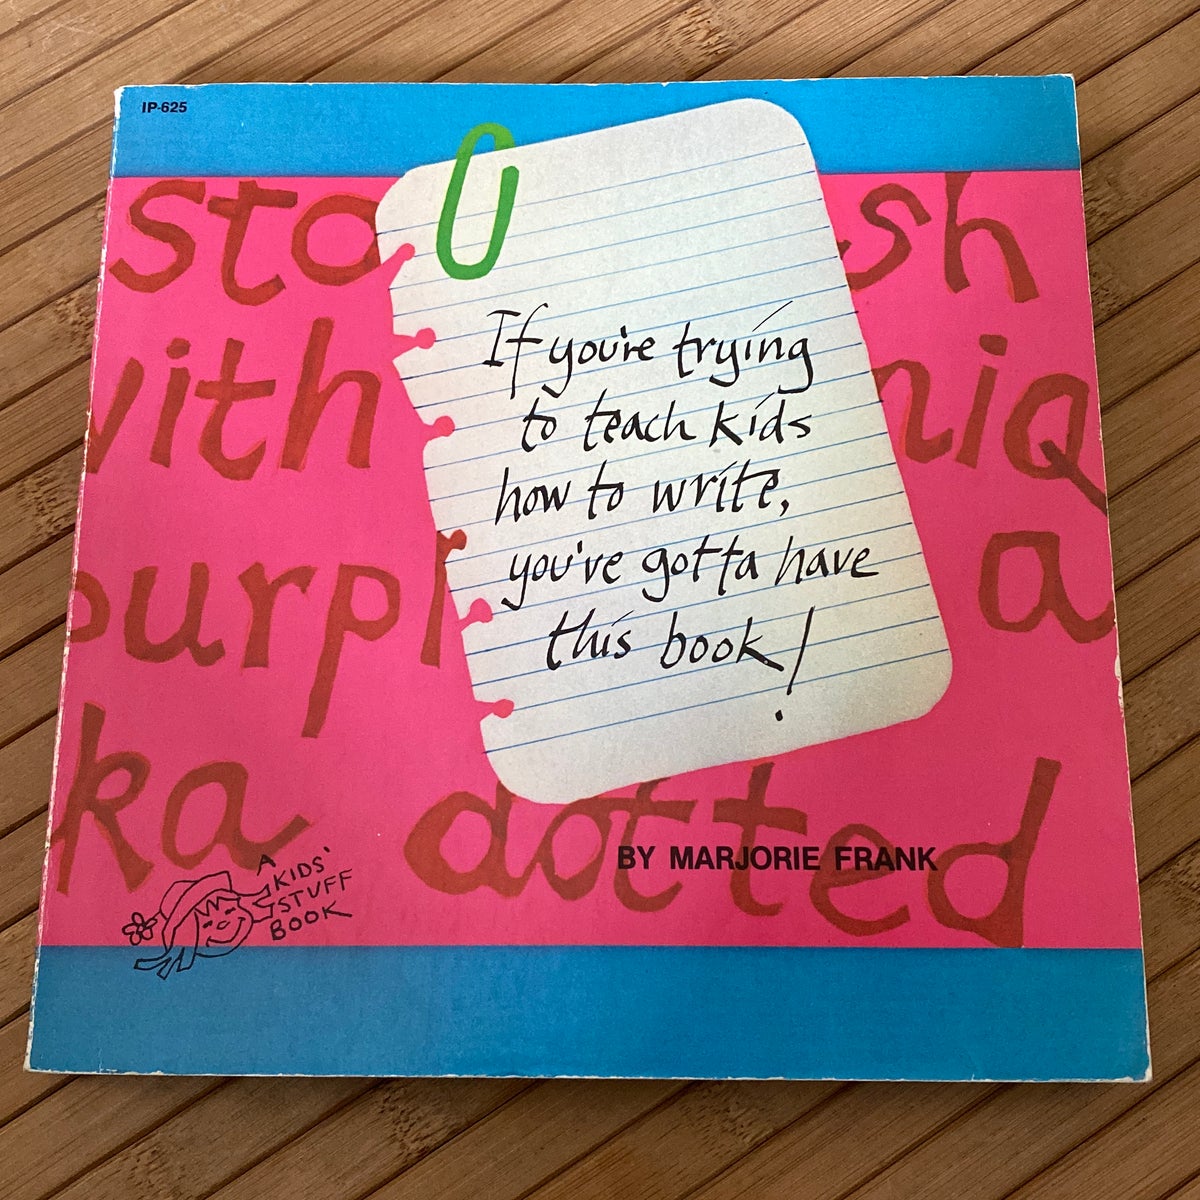 IP-625
sto sh
with niq
purpl a
ka dotted
If you're trying
to teach kids
how to write,
you've gotta have
this book!
BY MARJORIE FRANK
A
KIDS'
STUFF
BOOK